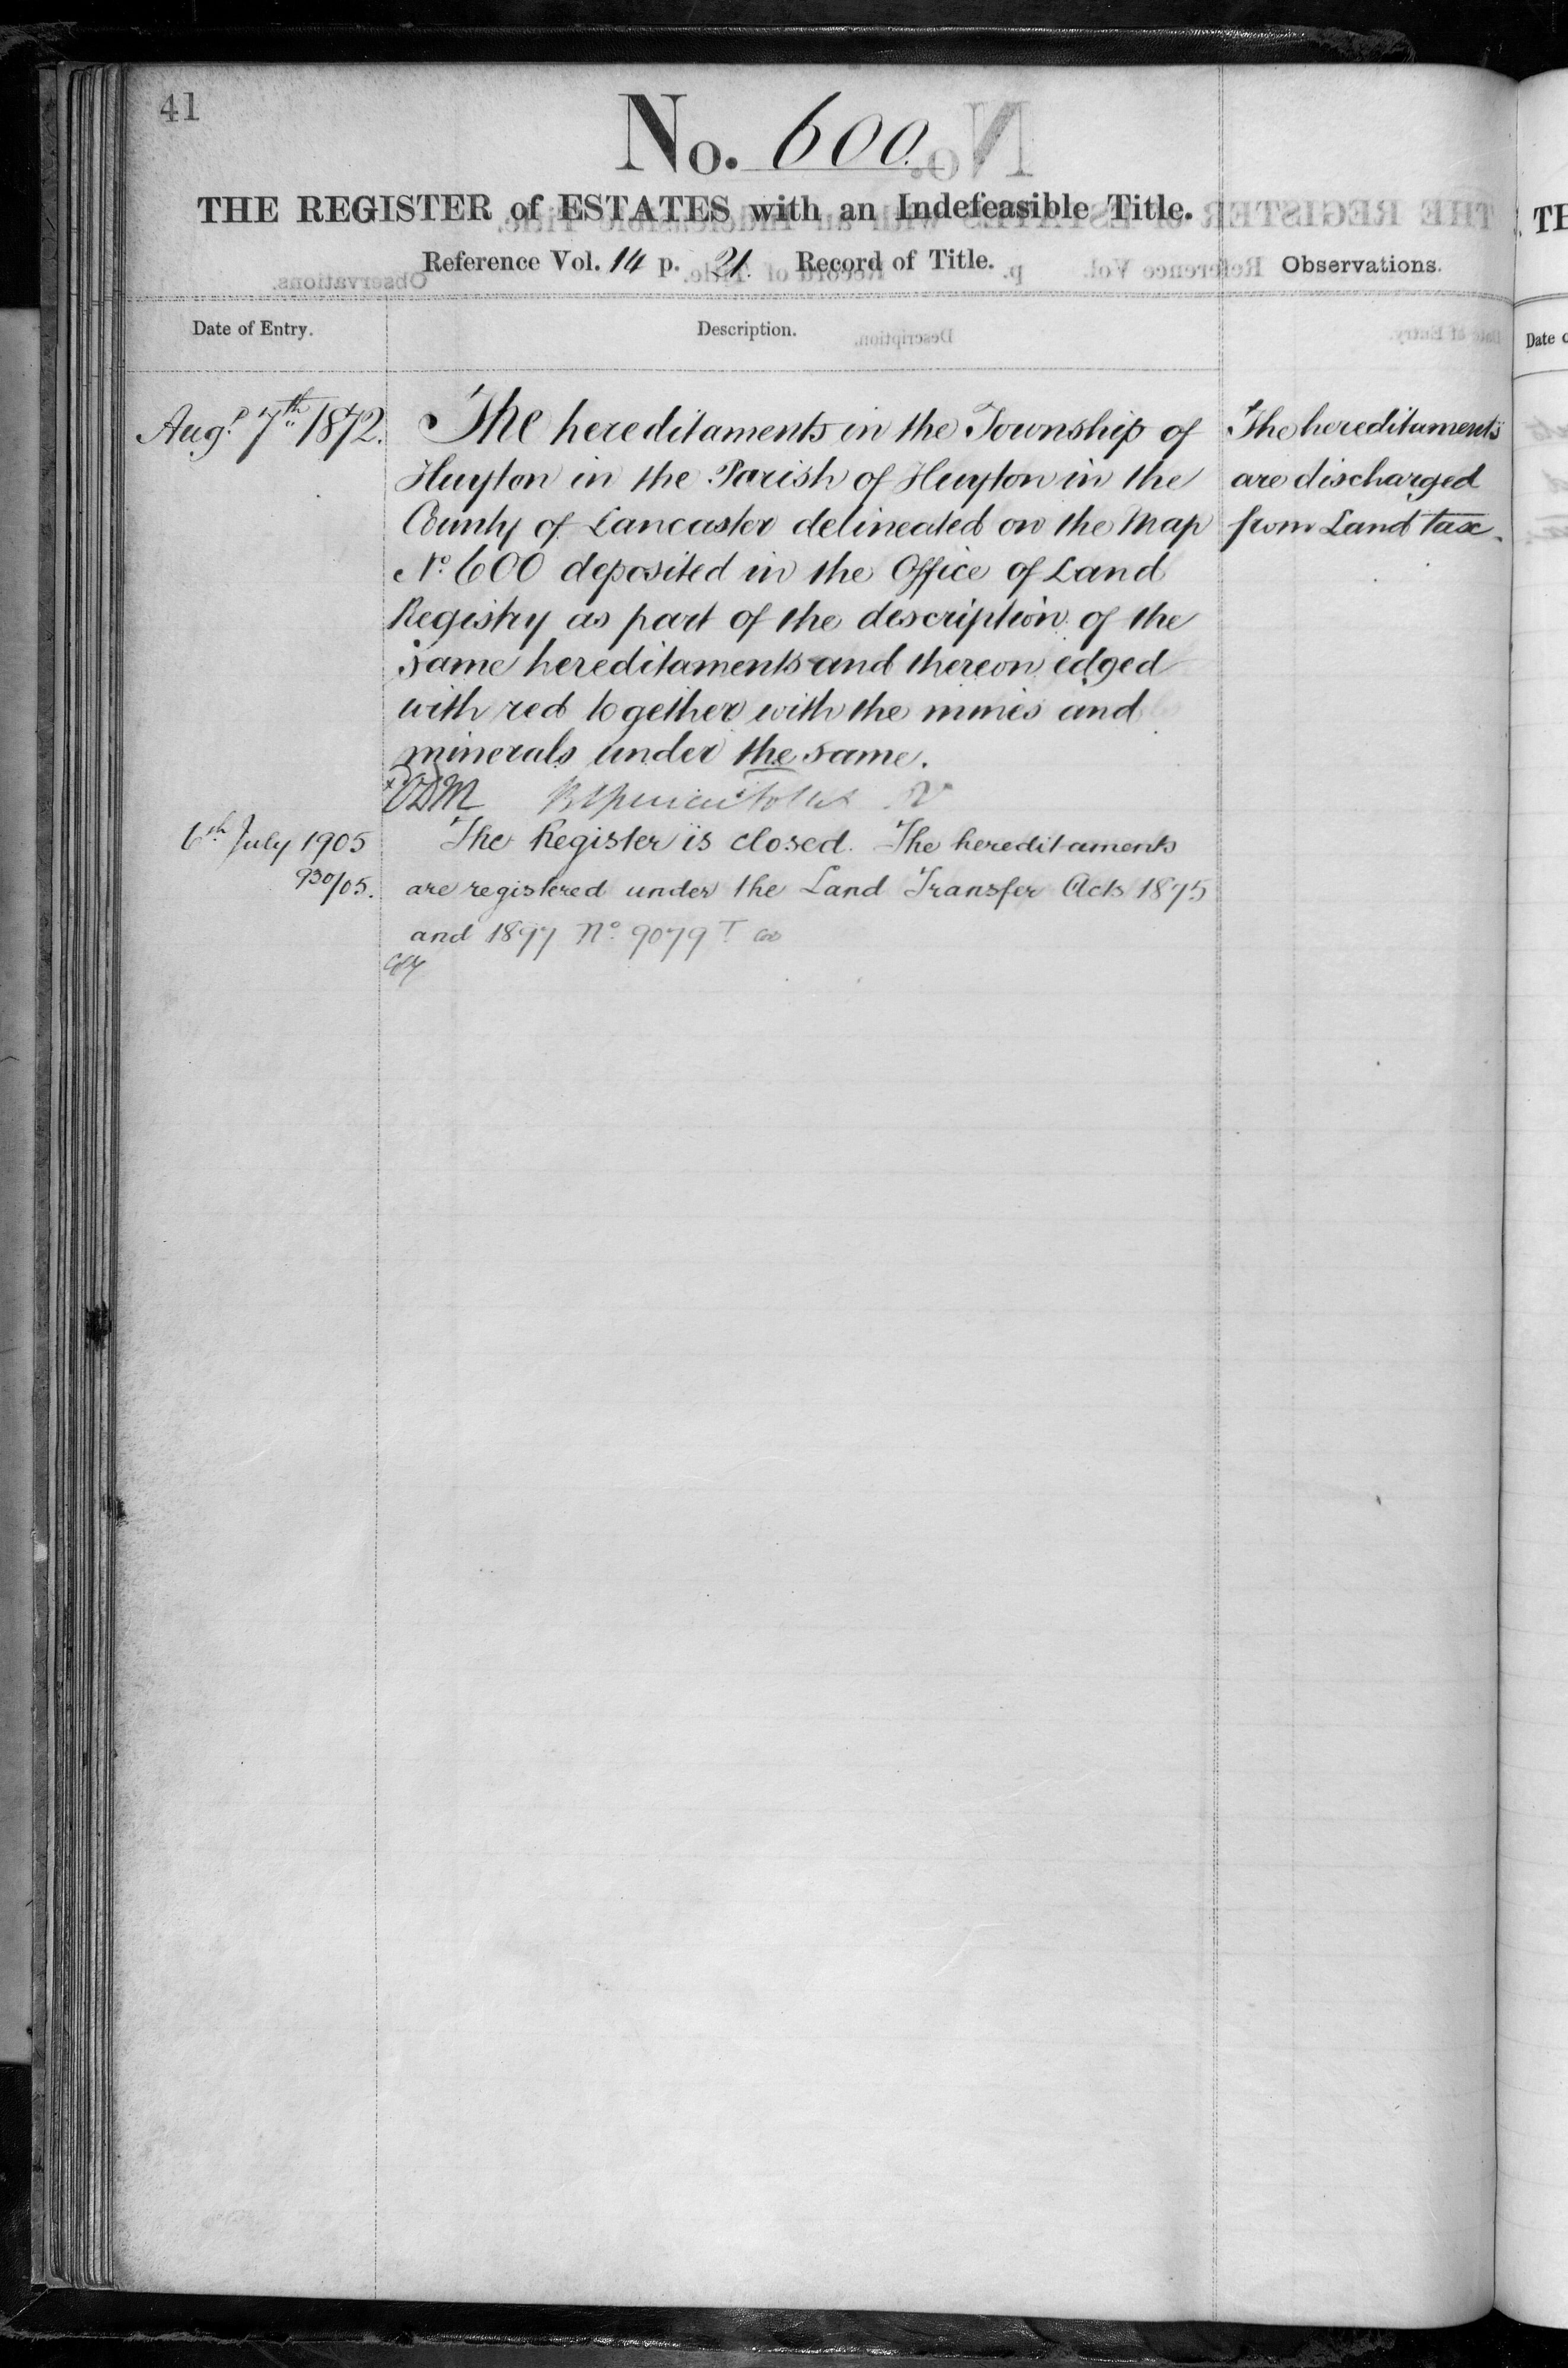 41
No. 600.
THE REGISTER of ESTATES with an Indefeasible Title.
Reference Vol. 14 p. 21. Record of Title.
Observations.
Date of Entry.
Description.
Augt 7th 1872.
The hereditaments in the Township of
Huyton in the Parish of Huyton in the
County of Lancaster delineated on the Map
No 600 deposited in the Office of Land
Registry as part of the description of the
same hereditaments and thereon edged
with red together with the mines and
minerals under the same.
The hereditaments
are discharged
from Land tax.
6th July 1905
930/05.
The Register is closed. The hereditaments
are registered under the Land Transfer Acts 1875
and 1897 No 9079
TH
Date o